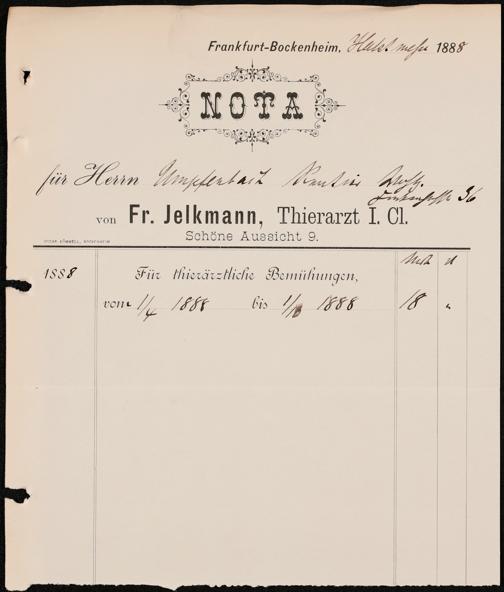 Frankfurt-Bockenheim, Herbstmesse 1888
NOTA
für Herrn Umpfenbach Rentier
36
von Fr. Jelkmann, Thierarzt I. Cl.
Schöne Aussicht 9.
1888 Für thierärztliche Bemühungen,
vom 1/4 1888 bis 1/10 1888 18 "